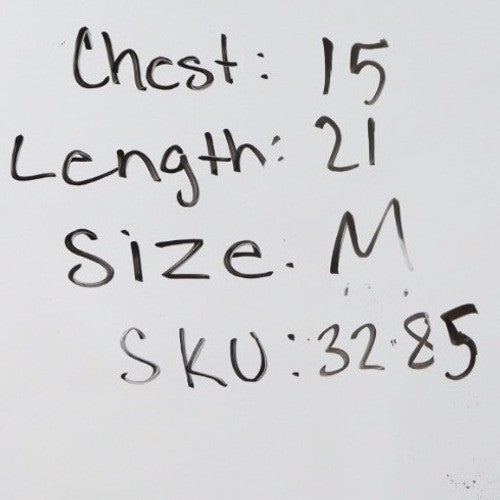 Chest: 15
Length: 21
Size. M
SKU: 3285